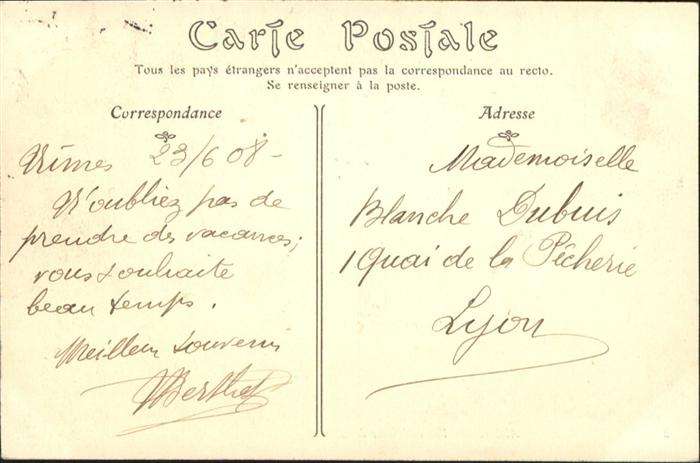 Carte Postale
Tous les pays étrangers n'acceptent pas la correspondance au recto.
Se renseigner à la poste.
Correspondance
Nîmes 23/6 08 -
N'oubliez pas de
prendre des vacances;
vous souhaite
beau temps.
Meilleur souvenir
Adresse
Mademoiselle
Blanche Dubuis
1 Quai de la Pêcherie
Lyon